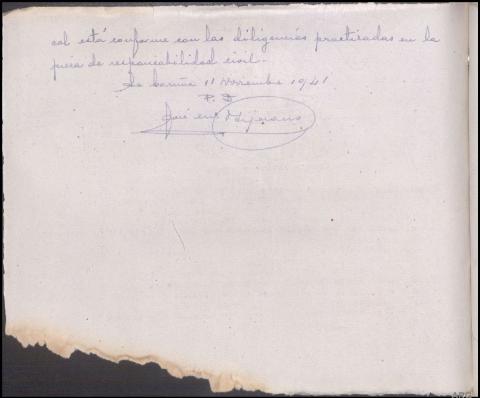 cal está conforme con las diligencias practicadas en la
pieza de responsabilidad civil.-
La Coruña 11 Noviembre 1941
P. D
José